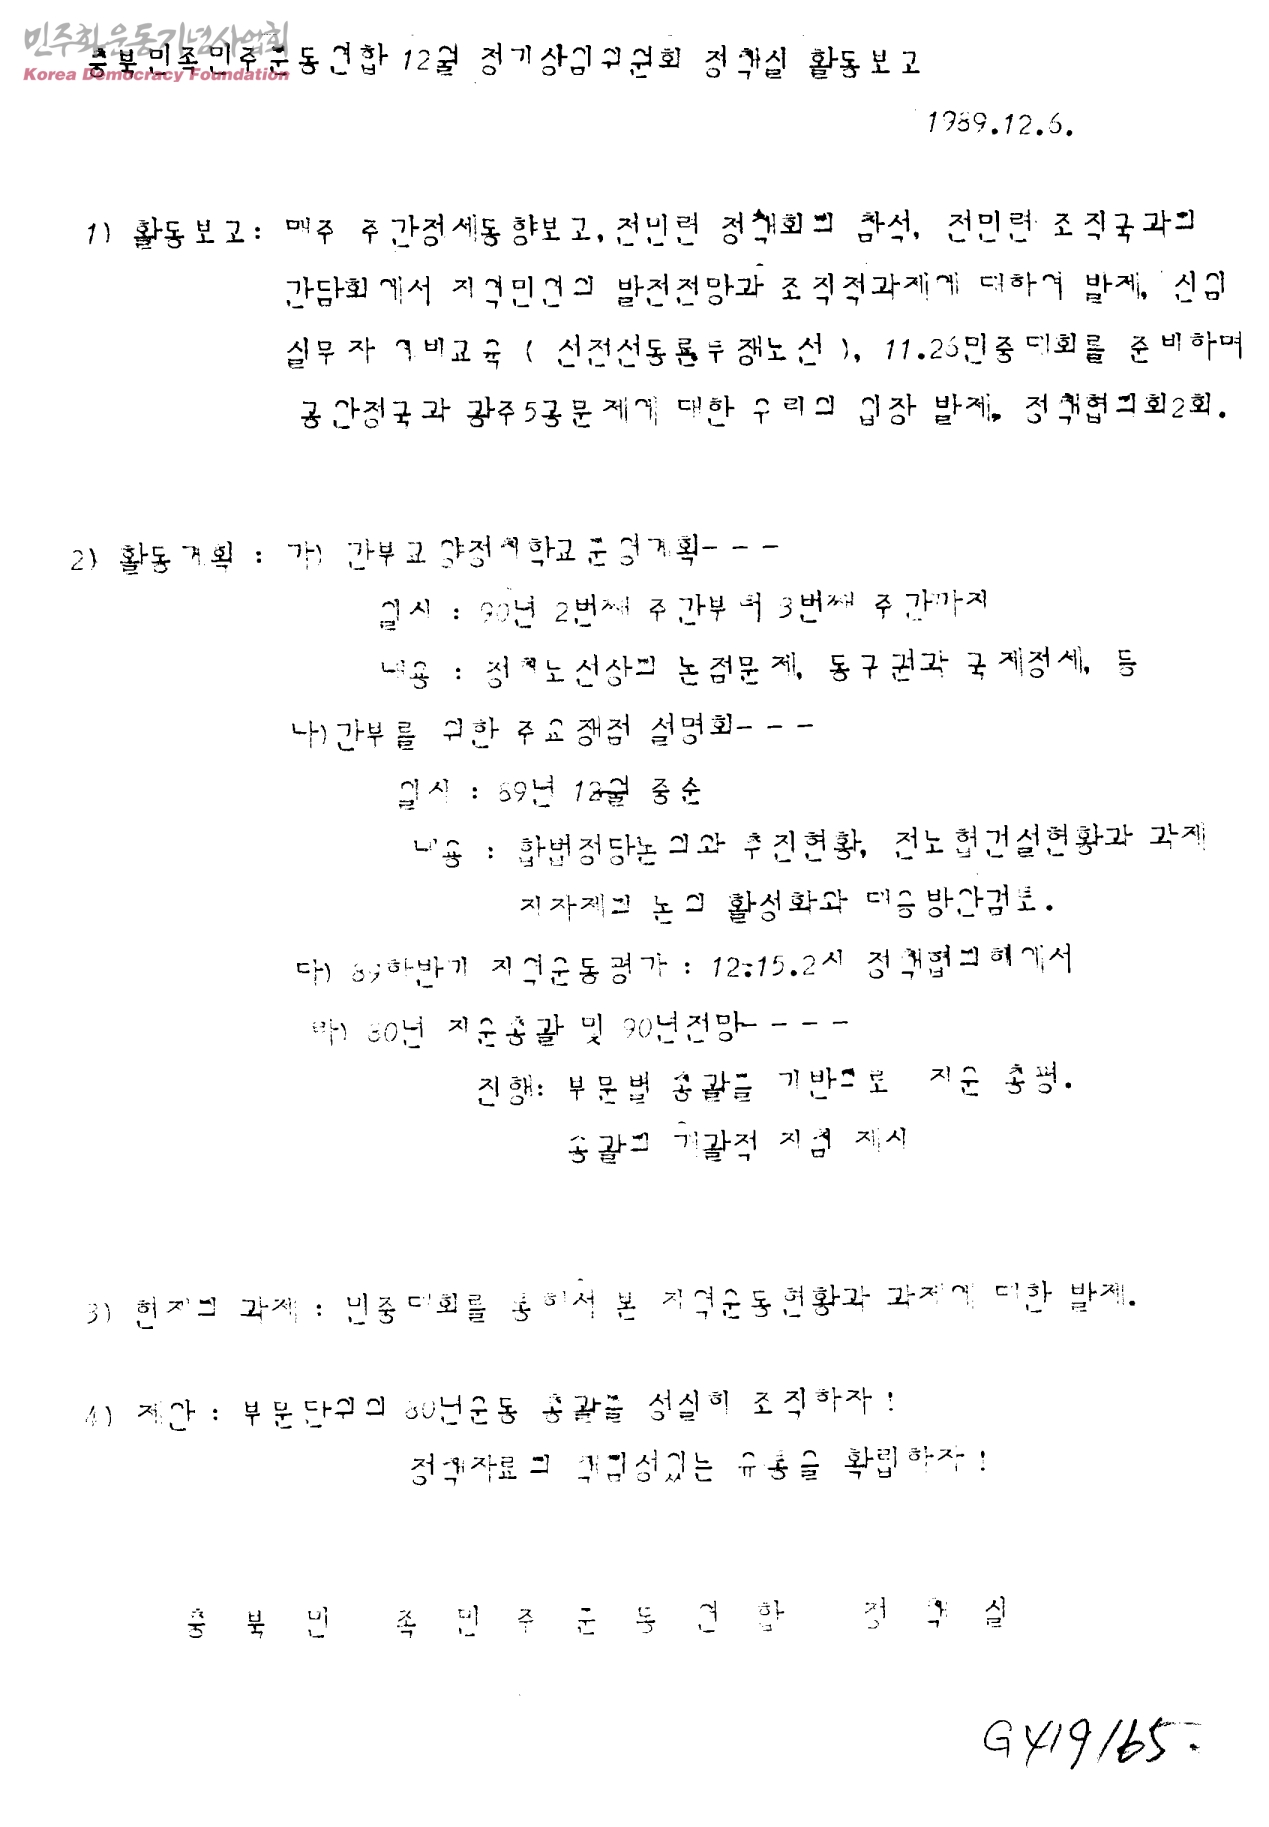 민주화운동기념사업회
Korea Democracy Foundation
충북민족민주운동연합 12월 정기상임위원회 정책실 활동보고
1989.12.6.
1) 활동보고: 매주 주간정세동향보고, 전민련 정책회의 참석, 전민련 조직국과의
간담회에서 지역민연의 발전전망과 조직적과제에 대하여 발제, 신임
실무자 예비교육 ( 선전선동론투쟁노선 ), 11.26민중대회를 준비하며
공안정국과 광주5공문제에 대한 우리의 입장 발제, 정책협의회2회.
2) 활동계획 : 가) 간부교양정책학교운영계획- - -
일시 : 90년 2번째 주간부터 3번째 주간까지
내용 : 정책노선상의 논점문제, 동구권과 국제정세, 등
나)간부를 위한 주요쟁점 설명회- - -
일시 : 89년 12월 중순
내용 : 합법정당논의와 추진현황, 전노협건설현황과 과제
지자제의 논의 활성화와 대응방안검토.
다) 89하반기 지역운동평가 : 12.15.2시 정책협의회에서
라) 80년 지운총괄 및 90년전망- - - -
진행: 부문별 총괄을 기반으로 지운 총평.
총괄의 개괄적 지침 제시
3) 현재의 과제 : 민중대회를 통해서 본 지역운동현황과 과제에 대한 발제.
4) 제안 : 부문단위의 80년운동 총괄을 성실히 조직하자!
정책자료의 책임성있는 유통을 확립하자!
충 북 민 족 민 주 운 동 연 합 정 책 실
G419/65.